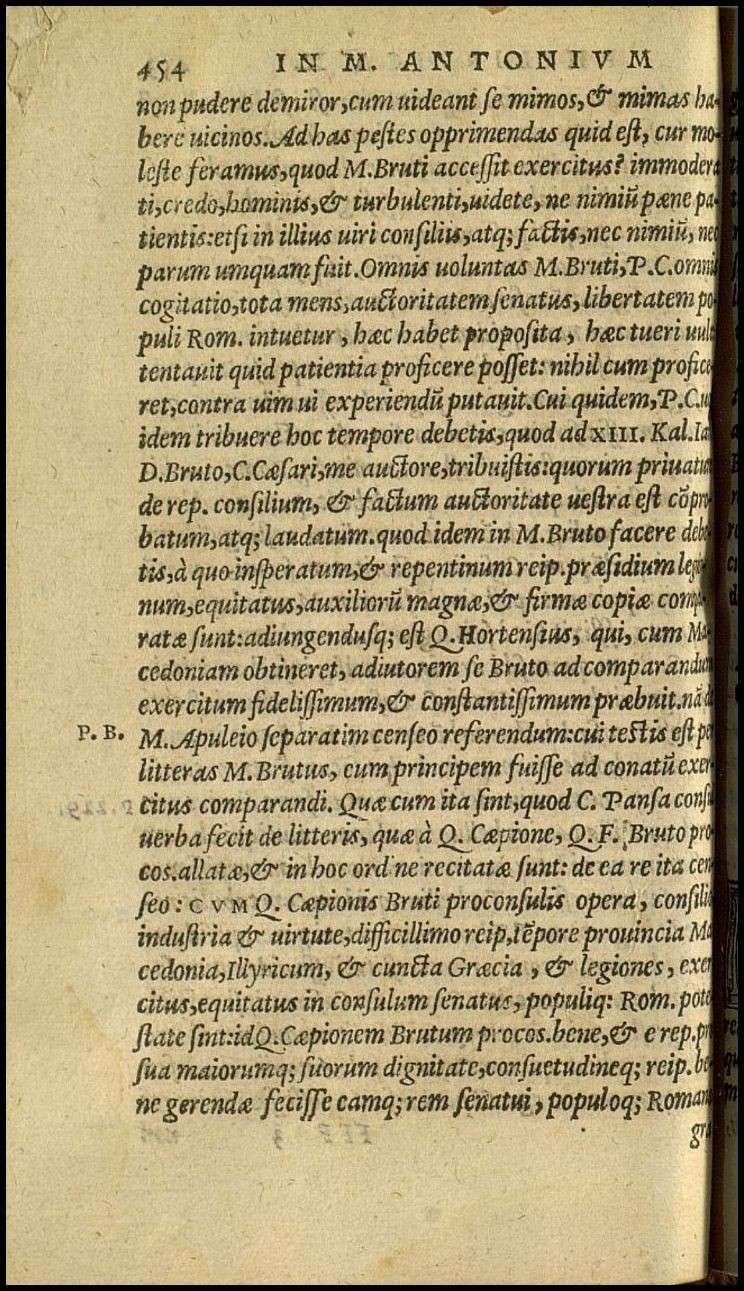 454 IN M. ANTONIVM
non pudere demiror, cum uideant se mimos, & mimas ha-
bere uicinos. Ad has pestes opprimendas quid est, cur mo-
leste feramus, quod M. Bruti accessit exercitus? immodera
ti, credo, hominis, & turbulenti, uidete, ne nimiũ pæne pa-
tientis: etsi in illius uiri consiliis, atq; factis, nec nimiũ, nec
parum umquam fuit. Omnis uoluntas M. Bruti, P. C. omnis
cogitatio, tota mens, auctoritatem senatus, libertatem po
puli Rom. intuetur, hæc habet proposita, hæc tueri uult
tentauit quid patientia proficere posset: nihil cum profice
ret, contra uim ui experiendũ putauit. Cui quidem, P. C. ,
idem tribuere hoc tempore debetis, quod ad XIII. Kal. Ia
D. Bruto, C. Cæsari, me auctore, tribuistis: quorum priuatum
de rep. consilium, & factum auctoritate uestra est cõpro
batum, atq; laudatum. quod idem in M. Bruto facere debe
tis, à quo insperatum, & repentinum reip. præsidium legio
num, equitatus, auxiliorũ magnæ, & firmæ copiæ compa-
ratæ sunt: adiungendusq; est Q. Hortensius, qui, cum Ma
cedoniam obtineret, adiutorem se Bruto ad comparandum
exercitum fidelissimum, & constantissimum præbuit. nã d
P. B. M. Apuleio separatim censeo referendum: cui testis est per
litteras M. Brutus, cum principem fuisse ad conatũ exer
citus comparandi. Quæ cum ita sint, quod C. Pansa consul
uerba fecit de litteris, quæ à Q. Cæpione, Q. F. Bruto pro
cos. allatæ, & in hoc ord ne recitatæ sunt: de ea re ita cen
seo: CVM Q. Cæpionis Bruti proconsulis opera, consilio
industria & uirtute, difficillimo reip. tẽpore prouincia Ma
cedonia, Illyricum, & cuncta Græcia, & legiones, exer
citus, equitatus in consulum senatus, populiq: Rom. pote
state sint: id Q. Cæpionem Brutum procos. bene, & e rep. pro
sua maiorumq; suorum dignitate, consuetudineq; reip. be
ne gerendæ fecisse eamq; rem senatui, populoq; Romano
gra